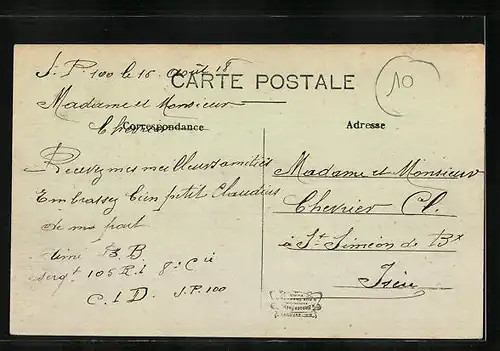 S. P. 100 le 16 août 18
CARTE POSTALE
10
Madame et Monsieur
Chevrier
Correspondance
Adresse
Recevez mes meilleurs amitiés
Embrassez bien petit Claudius
de ma part
Madame et Monsieur
Chevrier Cl.
à St Siméon de Bx
Isère
B.
Sergt 105 R.I 8e Cie
C.I.D. S.P. 100